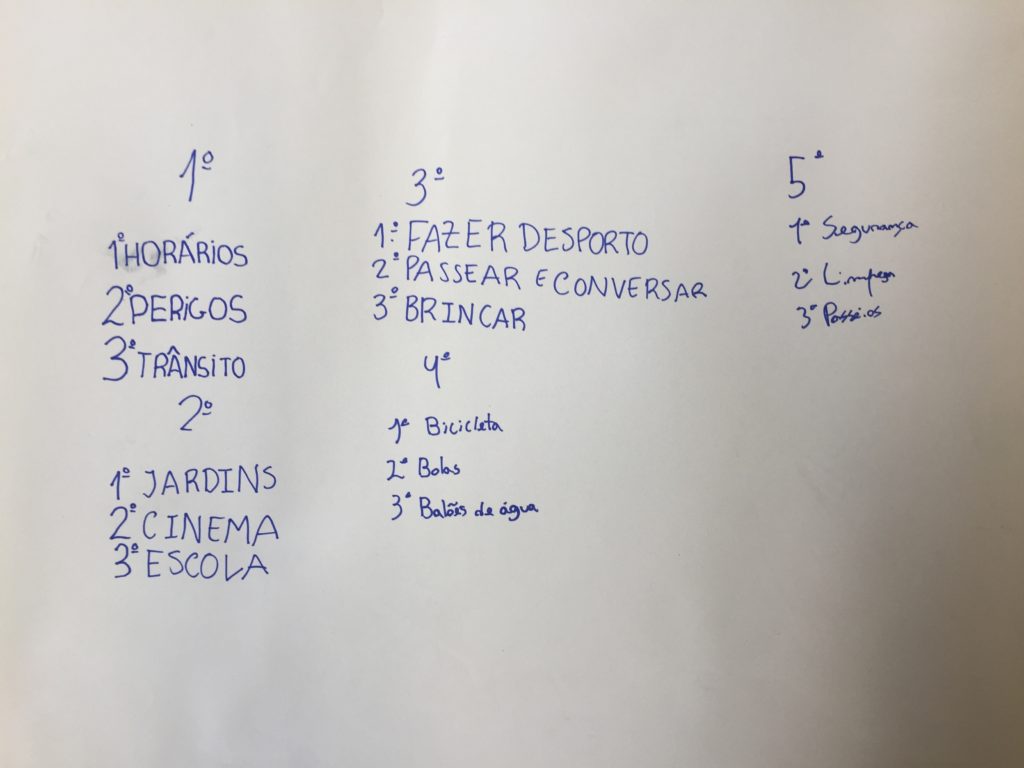 1º
1º HORÁRIOS
2º PERIGOS
3º TRÂNSITO
2º
1º JARDINS
2º CINEMA
3º ESCOLA
3º
1º FAZER DESPORTO
2º PASSEAR E CONVERSAR
3º BRINCAR
4º
1º Bicicleta
2º Bolas
3º Balões de água
5º
1º Segurança
2º Limpeza
3º Passeios